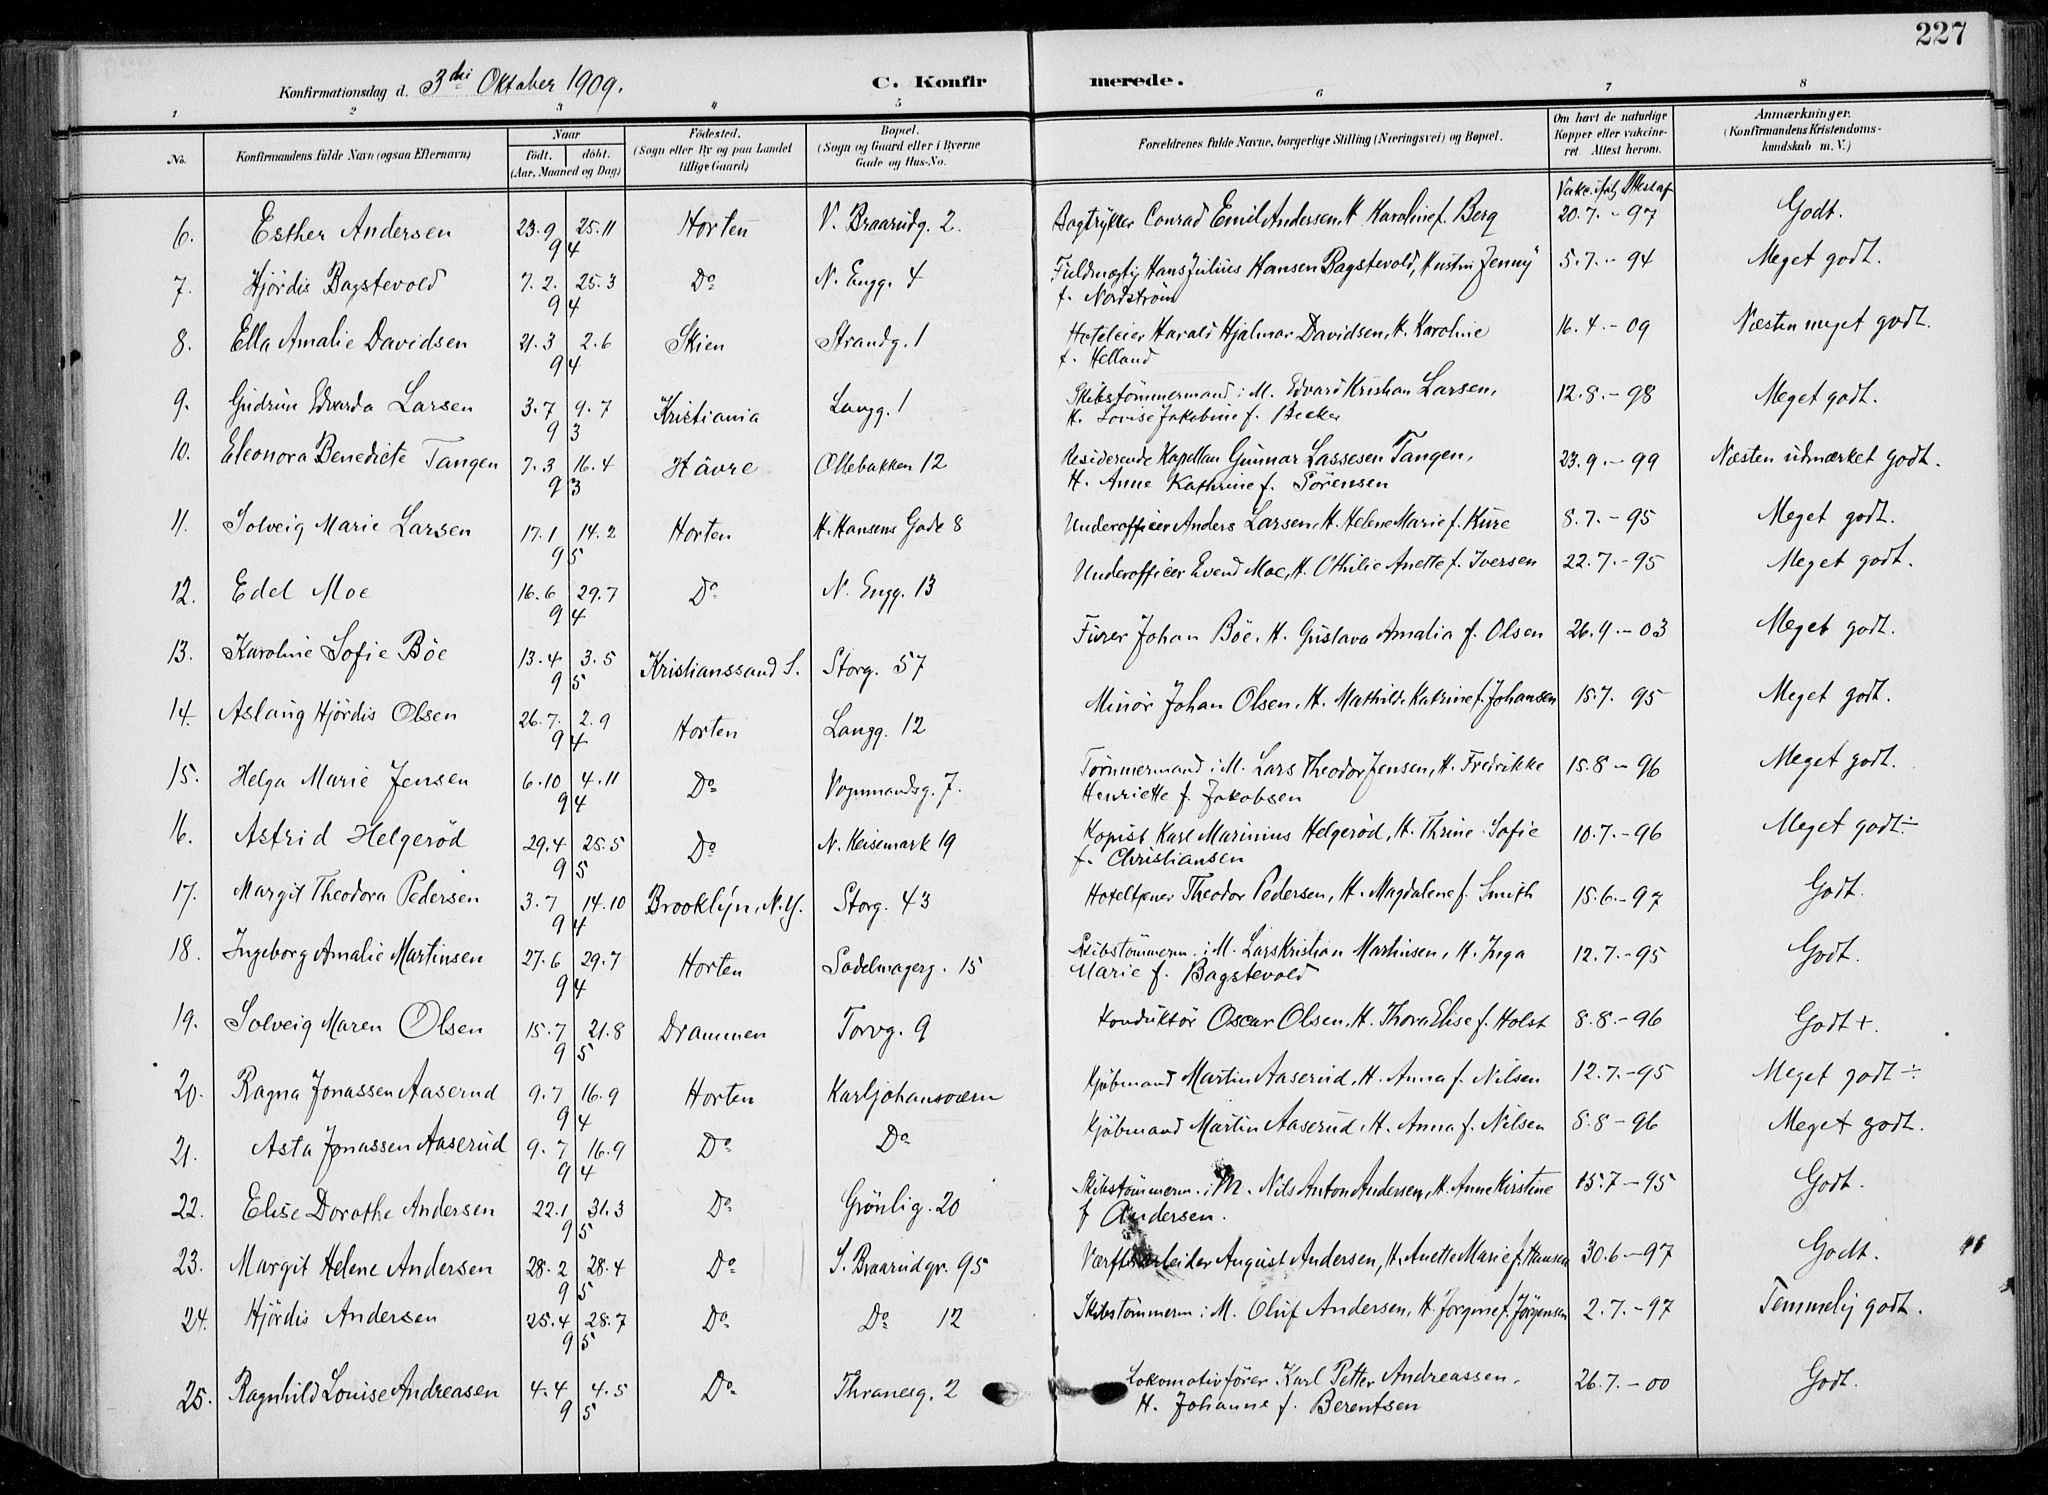 227
Konfirmationsdag d. 3die Oktober 1909. C. Konfirmerede.
1 2 3 4 5 6 7 8
No. Konfirmandens fulde Navn (ogsaa Efternavn) Naar født. døbt. (Aar, Maaned og Dag) Fødested. (Sogn eller By og paa Landet tillige Gaard) Bopæl. (Sogn og Gaard eller i Byerne Gade og Hus-No. Forældrenes fulde Navne, borgerlige Stilling (Næringsvei) og Bopæl. Om havt de naturlige Kopper eller vakcineret. Attest herom. Anmærkninger. (Konfirmandens Kristendomskundskab m. V.)
6. Esther Andersen 23.9 25.11 94 Horten V. Braarudg. 2. Bogtrykker Conrad Emil Andersen, H. Karoline f. Berg Vakc. ifølg Attest af 20.7.-97 Godt.
7. Hjördis Bagstevold 7.2. 25.3 94 Do N. Engg. 4 Fuldmægtig Hans Julius Hansen Bagstevold, Hustru Jenny
f. Nordström 5.7.-94 Meget godt.
8. Ella Amalie Davidsen 21.3 2.6 94 Skien Strandg. 1 Hoteleier Harald Hjalmar Davidsen, H. Karoline
f. Helland 16.4.-09 Næsten meget godt.
9. Gudrun Edvarda Larsen 3.7 9.7 93 Kristiania Langg. 1 Skibstömmermand i M. Edvard Kristian Larsen,
H. Lovise Jakobine f. Becker 12.8.-98 Meget godt.
10. Eleonora Benedicte Tangen 7.3 16.4 93 Hävre Ollebakken 12 Residerende Kapellan Gunnar Lassesen Tangen,
H. Anne Kathrine f. Sörensen 23.9.-99 Næsten udmærket godt.
11. Solveig Marie Larsen 17.1 14.2 95 Horten H. Hansens Gade 8 Underofficer Anders Larsen, H. Helene Marie f. Kure 8.7.-95 Meget godt.
12. Edel Moe 16.6 29.7 94 Do N. Engg. 13 Underofficer Evend Moe, H. Othilie Anette f. Iversen 22.7.-95 Meget godt.
13. Karoline Sofie Böe 13.4 3.5 95 Kristianssand S. Storg. 57 Furer Johan Böe, H. Gustava Amalia f. Olsen 26.9.-03 Meget godt.
14. Aslaug Hjördis Olsen 26.7. 2.9 94 Horten Langg. 12 Minör Johan Olsen, H. Mathilde Katrine f. Johansen 15.7. 95 Meget godt.
15. Helga Marie Jensen 6.10 4.11 94 Do Vognmandsg. 7. Tömmermand i M. Lars Theodor Jensen, H. Fredrikke
Henriette f. Jakobsen 15.8-96 Meget godt.
16. Astrid Helgeröd 29.4 25.5 95 Do N. Keisemark 19 Kopist Karl Marinius Helgeröd, H. Thrine Sofie
f. Christiansen 10.7.-96 Meget godt ÷
17. Margit Theodora Pedersen 3.7 14.10 94 Brooklyn, N.Y. Storg. 43 Hoteltjener Theodor Pedersen, H. Magdalene f. Smith 15.6.-97 Godt.
18. Ingeborg Amalie Martinsen 27.6 29.7 94 Horten Sadelmagerg. 15 Skibstömmerm. i M. Lars Kristian Martinsen, H. Inga
Marie f. Bagstevold 12.7.-95 Godt.
19. Solveig Maren Olsen 15.7 21.8 95 Drammen Torvg. 9 Konduktör Oscar Olsen, H. Thora Elise f. Holst 8.8-96 Godt +.
20. Ragna Jonassen Aaserud 9.7 16.9 94 Horten Karljohansværn Kjöbmand Martin Aaserud, H. Anna f. Nilsen 12.7.-95 Meget godt ÷
21. Asta Jonassen Aaserud 9.7 16.9 94 Do Do Kjöbmand Martin Aaserud, H. Anna f. Nilsen 8.8-96 Meget godt.
22. Elise Dorothe Andersen 22.1 31.3 95 Do Grönlig. 20 Skibstömmerm. i M. Nils Anton Andersen, H. Anne Kirstine
f Andersen. 15.7-95 Godt.
23. Margit Helene Andersen 28.2 28.4 95 Do S. Braarudgr. 95 Værftsarbeider August Andersen, H. Anette Marie f. Hansen 30.6-97 Godt.
24. Hjördis Andersen 25.4 28.7 95 Do Do 12 Skibstömmerm i M. Oluf Andersen, H. Jorgine f. Jörgensen 2.7.-97 Temmelig godt.
25. Ragnhild Louise Andreasen 4.4 4.5 95 Do Thranesg. 2 Lokomotivförer Karl Petter Andreassen,
H. Johanne f. Berentsen 26.7.-00 Godt.